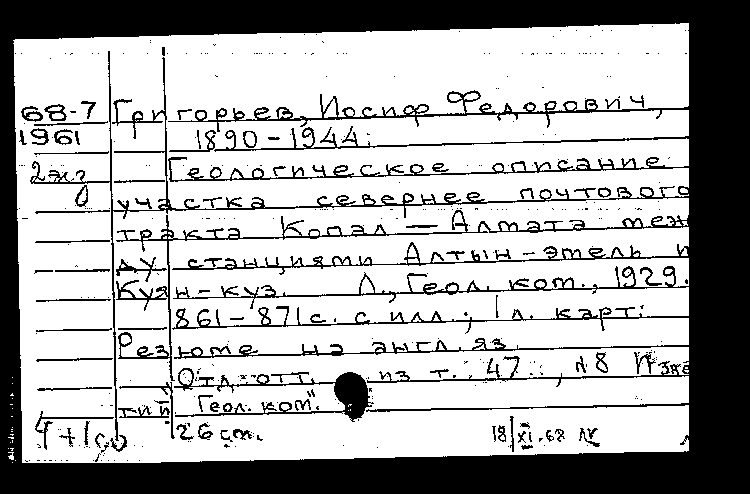 68-7 Григорьев, Иосиф Федорович,
1961 1890-1944.
2экз Геологическое описание
участка севернее почтового
тракта Копал — Алмата меж
ду станциями Алтын-эмель и
Куян-куз. Л., Геол. ком., 1929.
861-871 с. с илл.; 1 л. карт.
Резюме на англ. яз.
"Отд. отт. из т. 47, №8 Изве
тий Геол. ком".
26 см. 18/XI-68